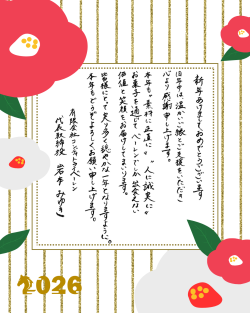 新年あけましておめでとうございます
旧年中は温かいご縁とご支援をいただき
心より感謝申し上げます。
本年も"素材に正直に"、"人に誠実に"
お菓子を通じて
価値と笑顔をお届けしてまいります。
皆様にとって実り多き穏やかな一年となりますように。
本年もどうぞよろしくお願い申し上げます。
有限会社コンディトライ
代表取締役 岩本みゆき
2026